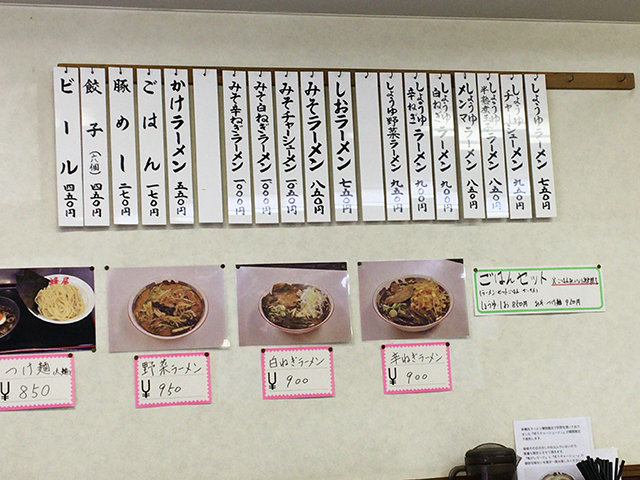 しょうゆラーメン 七五〇円
しょうゆチャーシューメン 九五〇円
しょうゆ半熟煮玉子ラーメン 八五〇円
しょうゆメンマラーメン 八五〇円
しょうゆ白ねぎラーメン 九〇〇円
しょうゆ辛ねぎラーメン 九〇〇円
しょうゆ野菜ラーメン 九五〇円
しおラーメン 七五〇円
みそラーメン 八五〇円
みそチャーシューメン 一〇五〇円
みそ白ねぎラーメン 一〇〇〇円
みそ辛ねぎラーメン 一〇〇〇円
かけラーメン 五五〇円
ごはん 一七〇円
豚めし 二七〇円
餃子(六個) 四五〇円
ビール 四五〇円
つけ麺
¥850
野菜ラーメン
¥950
白ねぎラーメン
¥900
辛ねぎラーメン
¥900
ごはんセット